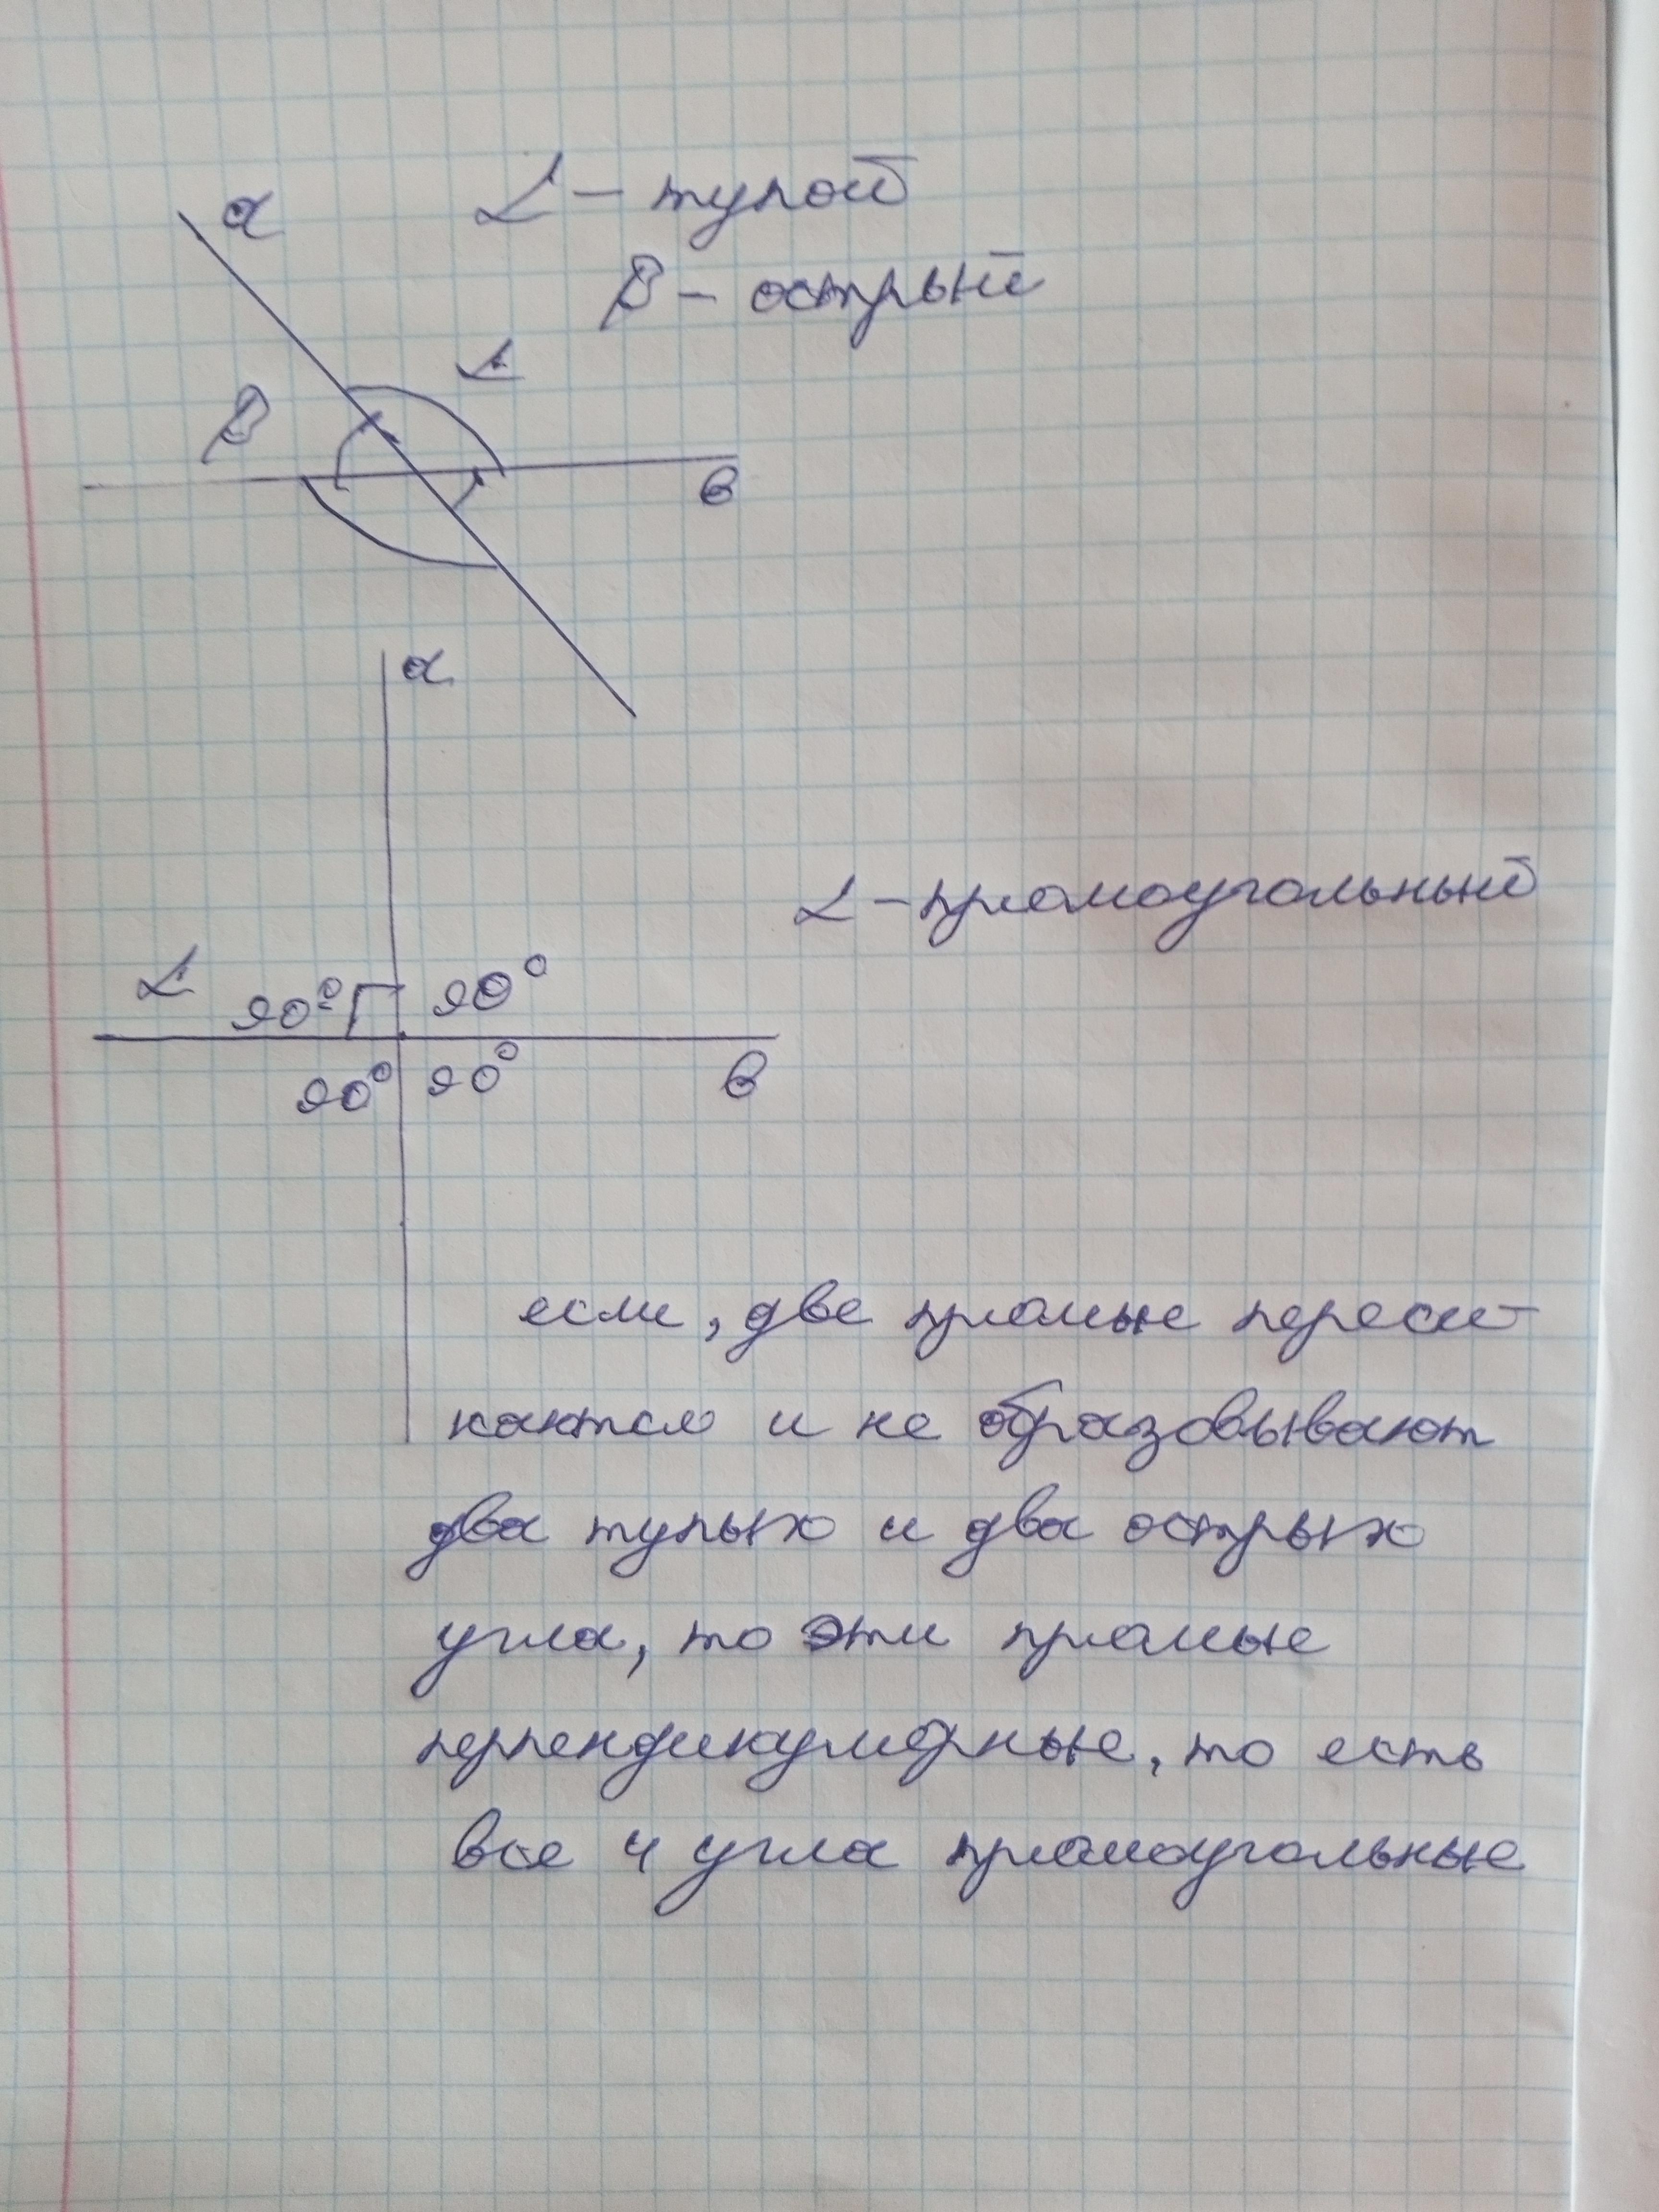 a
α – тупой
β – острый
α
β
в
a
α – прямоугольный
α
90°
90°
90°
90°
в
если, две прямые переси-
каются и не образовывают
два тупых и два острых
угла, то эти прямые
перпендикулярные, то есть
все 4 угла прямоугольные